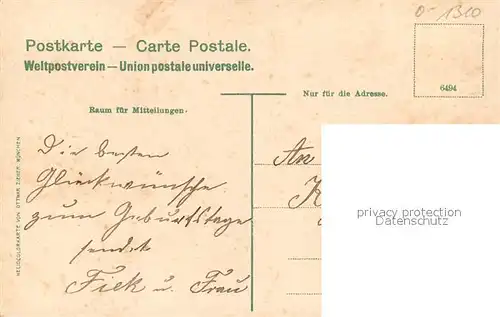 0-1310
Postkarte — Carte Postale.
Weltpostverein — Union postale universelle.
6494
Nur für die Adresse.
Raum für Mitteilungen.
Die besten
Glückwünsche
zum Geburtstage
sendet
Fick u. Frau
An
K
privacy protection
Datenschutz
HELIOCOLORKARTE VON OTTMAR ZIEHER, MÜNCHEN